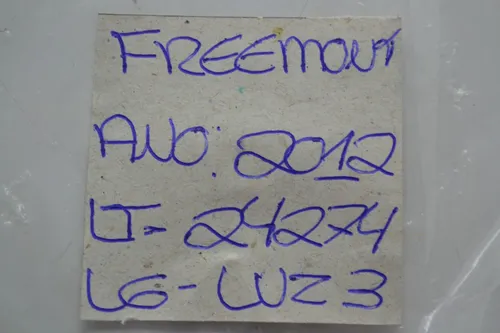 FREEMONT
ANO: 2012
LT- 24274
LG-LUZ 3